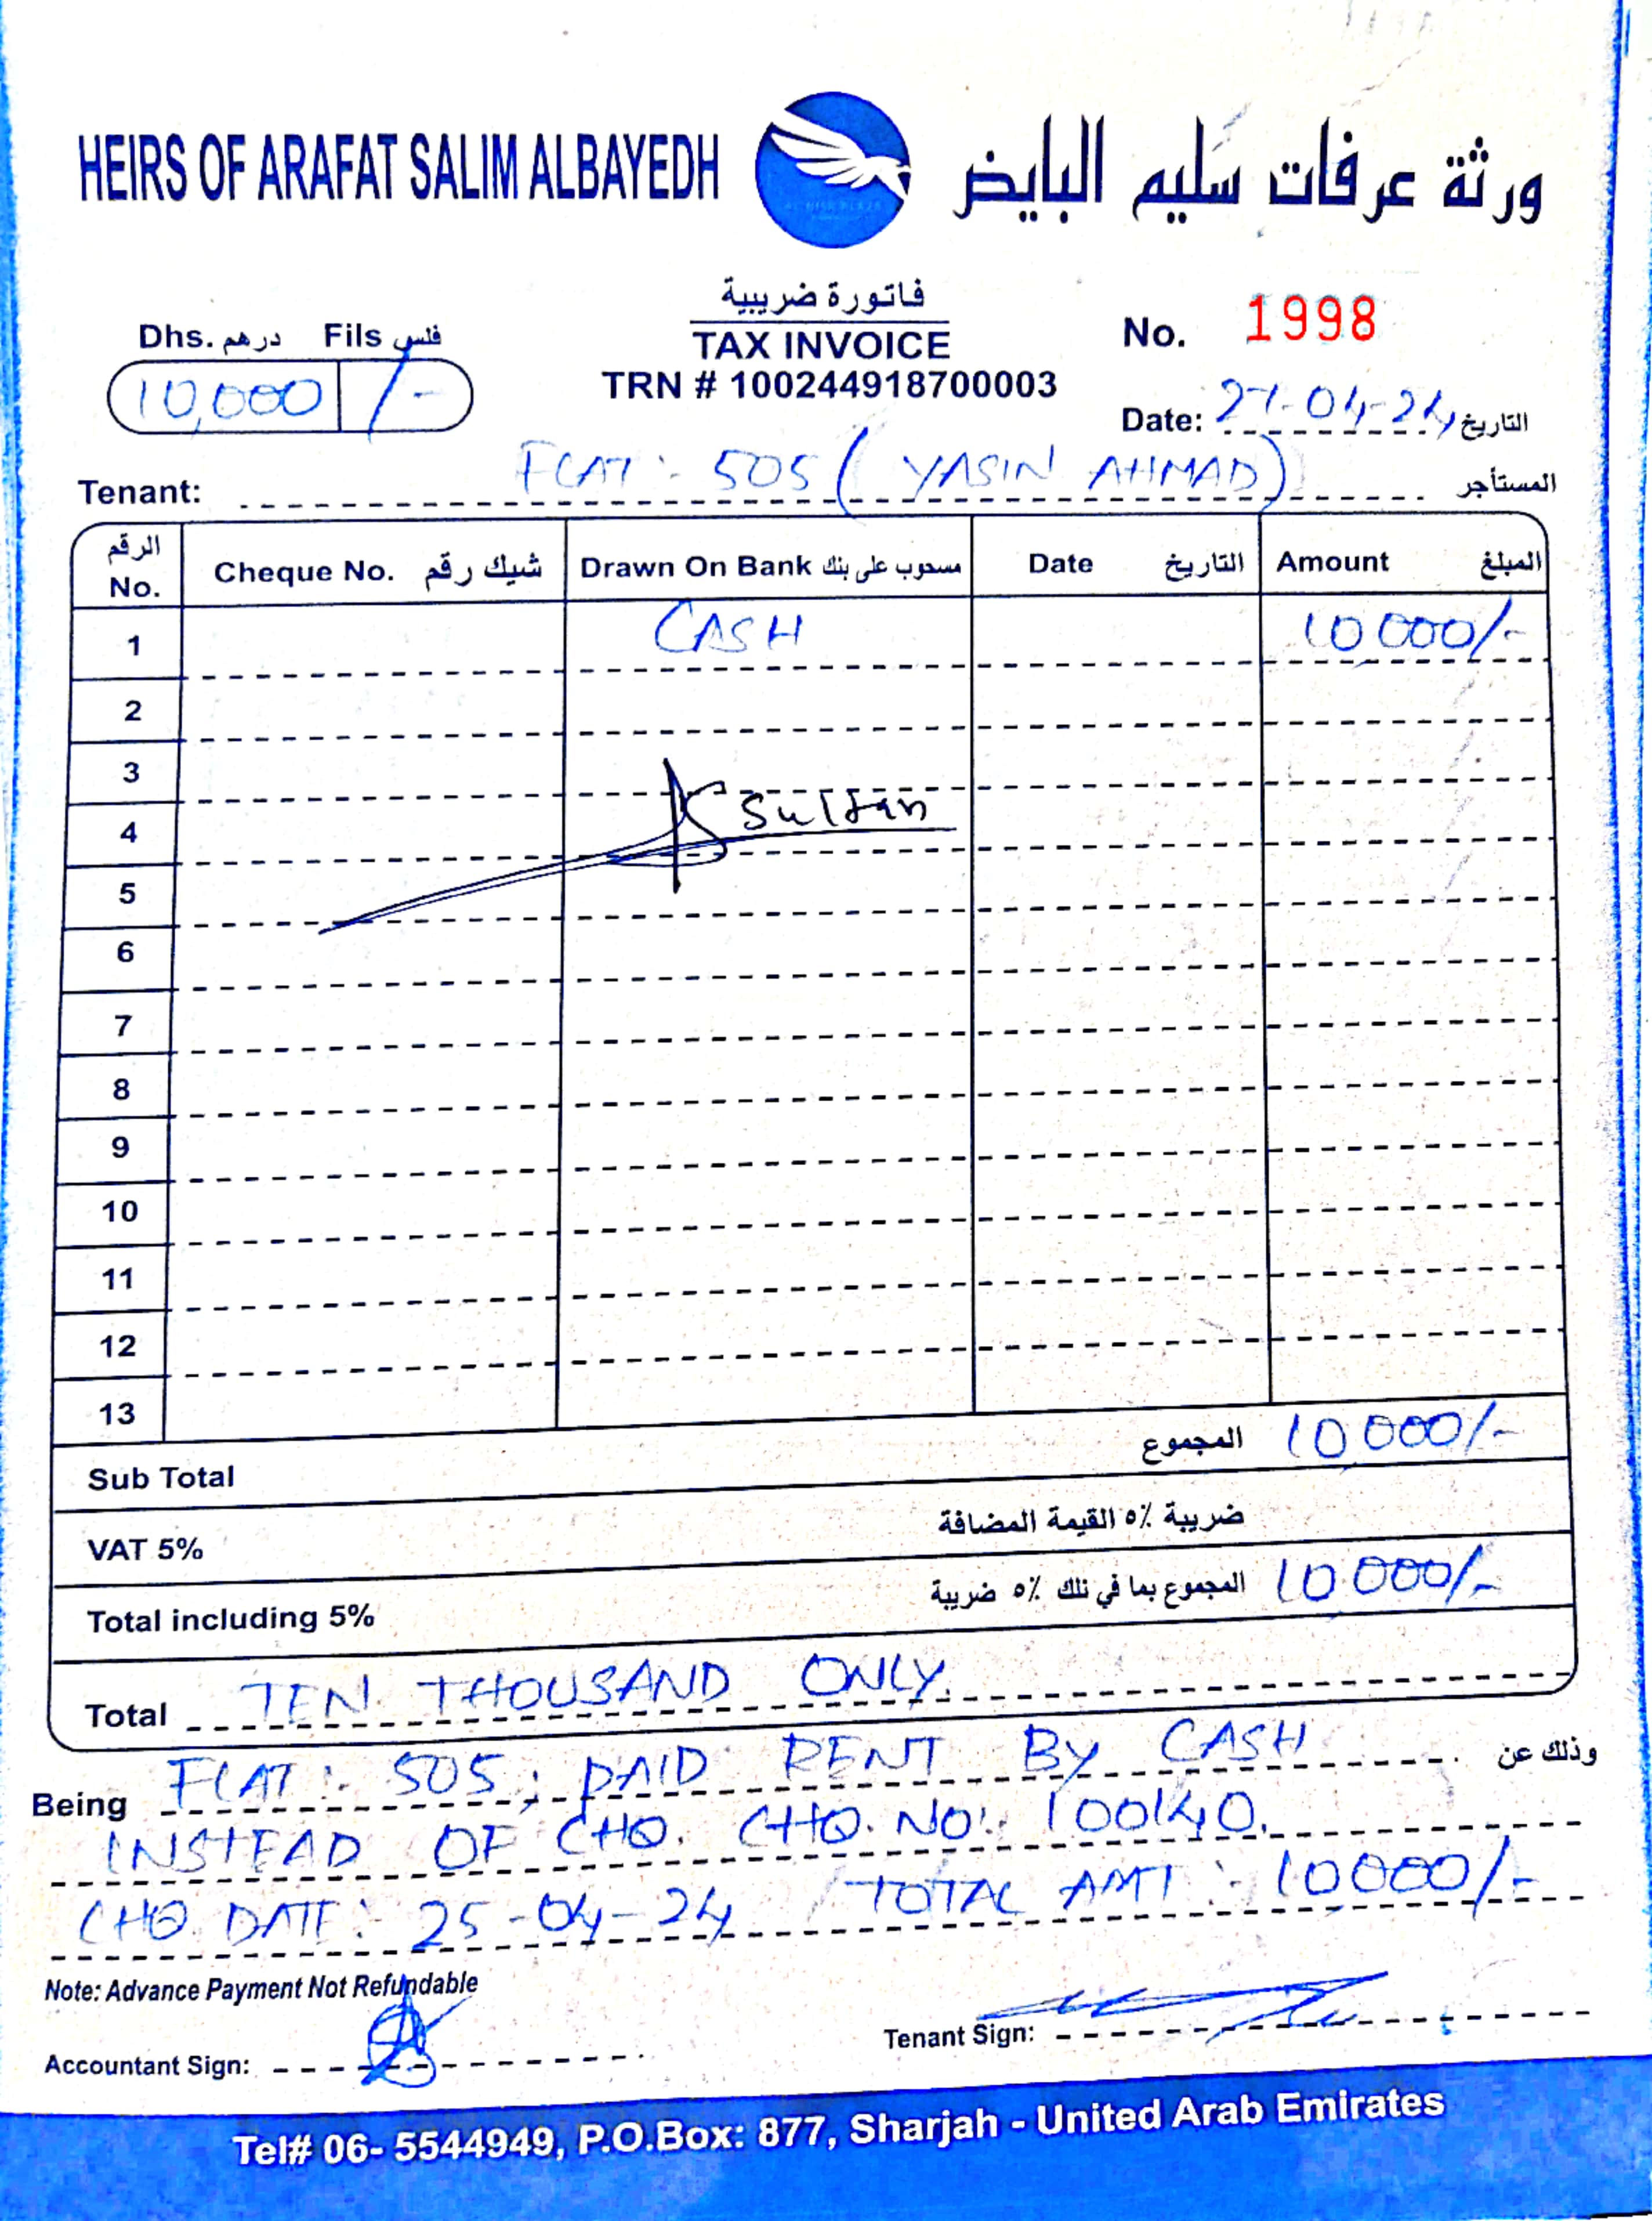 HEIRS OF ARAFAT SALIM ALBAYEDH ورثة عرفات سليم البايض
فاتورة ضريبية
Dhs. درهم Fils فلس
TAX INVOICE
No. 1998
10,000 /-
TRN # 100244918700003
Date: 27-04-24 التاريخ
Tenant: FLAT : 505 ( YASIN AHMAD ) المستأجر
الرقم No. Cheque No. شيك رقم Drawn On Bank مسحوب على بنك Date التاريخ Amount المبلغ
1 CASH 10000/-
2
3
4 Sultan
5
6
7
8
9
10
11
12
13
Sub Total المجموع 10000/-
VAT 5% ضريبة ٥٪ القيمة المضافة
Total including 5% المجموع بما في ذلك ٥٪ ضريبة 10000/-
Total TEN THOUSAND ONLY.
Being FLAT : 505 ; PAID RENT BY CASH وذلك عن
INSTEAD OF CHQ. CHQ. NO: 100140.
CHQ. DATE : 25-04-24 / TOTAL AMT : 10000/-
Note: Advance Payment Not Refundable
Accountant Sign: Tenant Sign:
Tel# 06- 5544949, P.O.Box: 877, Sharjah - United Arab Emirates